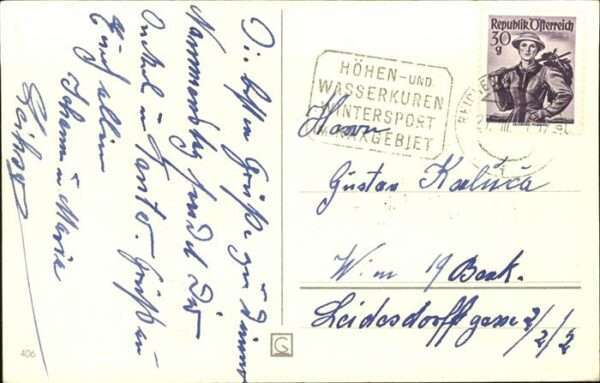 Die besten Grüße zu Deinem
Namenstag sendet Dir
Onkel u Tante. Grüße an
Euch allen
Johann u Maria
406
G
HÖHEN- UND
WASSERKUREN
WINTERSPORT
IM RAXGEBIET
Republik Österreich
30
g
Herrn
Gustav
Wien 19 Bezk.
Leidesdorffgasse 2/
2/2